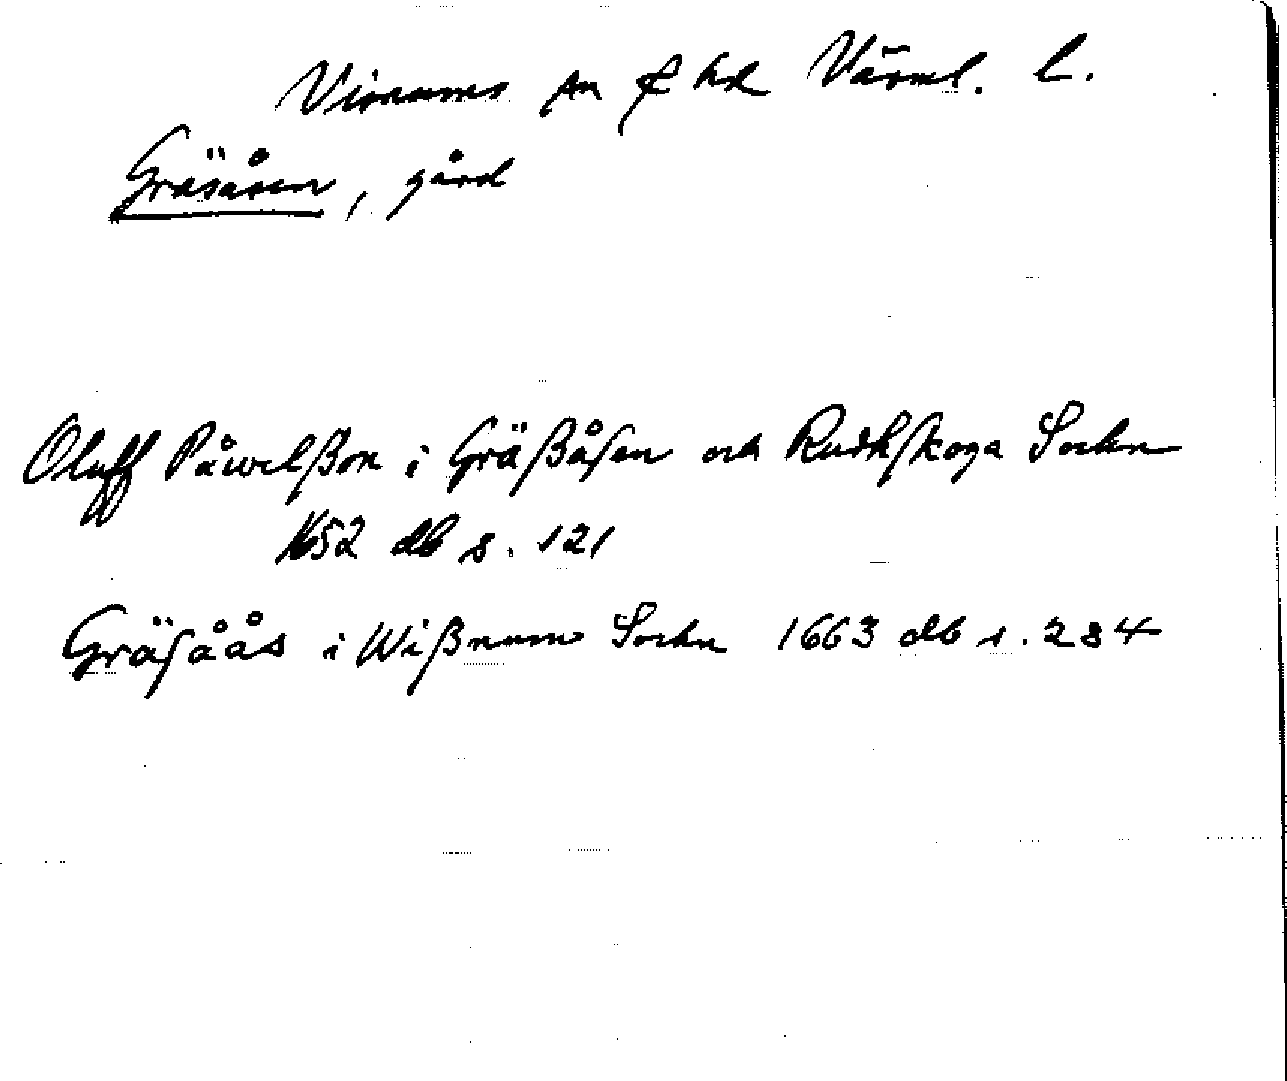 Visnums sn f hd Värml. l.
Gräsåsen, gård
Oluff Påwelßon i Gräßåsen och Rudhskoga Sochn
1652 db s. 121
Gräsåås i Wißnums Sochn 1663 db s. 284